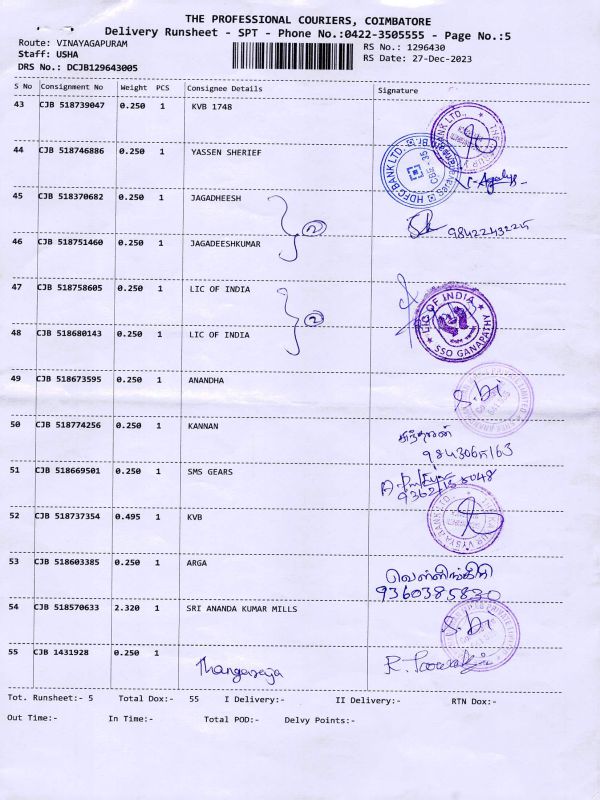 THE PROFESSIONAL COURIERS, COIMBATORE
Delivery Runsheet - SPT - Phone No.:0422-3505555 - Page No.:5
Route: VINAYAGAPURAM
Staff: USHA
DRS No.: DCJB129643005
RS No.: 1296430
RS Date: 27-Dec-2023
S No Consignment No Weight PCS Consignee Details Signature
43 CJB 518739047 0.250 1 KVB 1748
44 CJB 518746886 0.250 1 YASSEN SHERIEF
HDFC BANK LTD.
45 CJB 518370682 0.250 1 JAGADHEESH
2 9842243225
46 CJB 518751460 0.250 1 JAGADEESHKUMAR
47 CJB 518758605 0.250 1 LIC OF INDIA
2 LIC OF INDIA
SSO GANAPATHY
48 CJB 518680143 0.250 1 LIC OF INDIA
49 CJB 518673595 0.250 1 ANANDHA
50 CJB 518774256 0.250 1 KANNAN
51 CJB 518669501 0.250 1 SMS GEARS
52 CJB 518737354 0.495 1 KVB
53 CJB 518603385 0.250 1 ARGA
9360385830
54 CJB 518570633 2.320 1 SRI ANANDA KUMAR MILLS
55 CJB 1431928 0.250 1 Thangaraja
Tot. Runsheet:- 5 Total Dox:- 55 I Delivery:- II Delivery:- RTN Dox:-
Out Time:- In Time:- Total POD:- Delvy Points:-